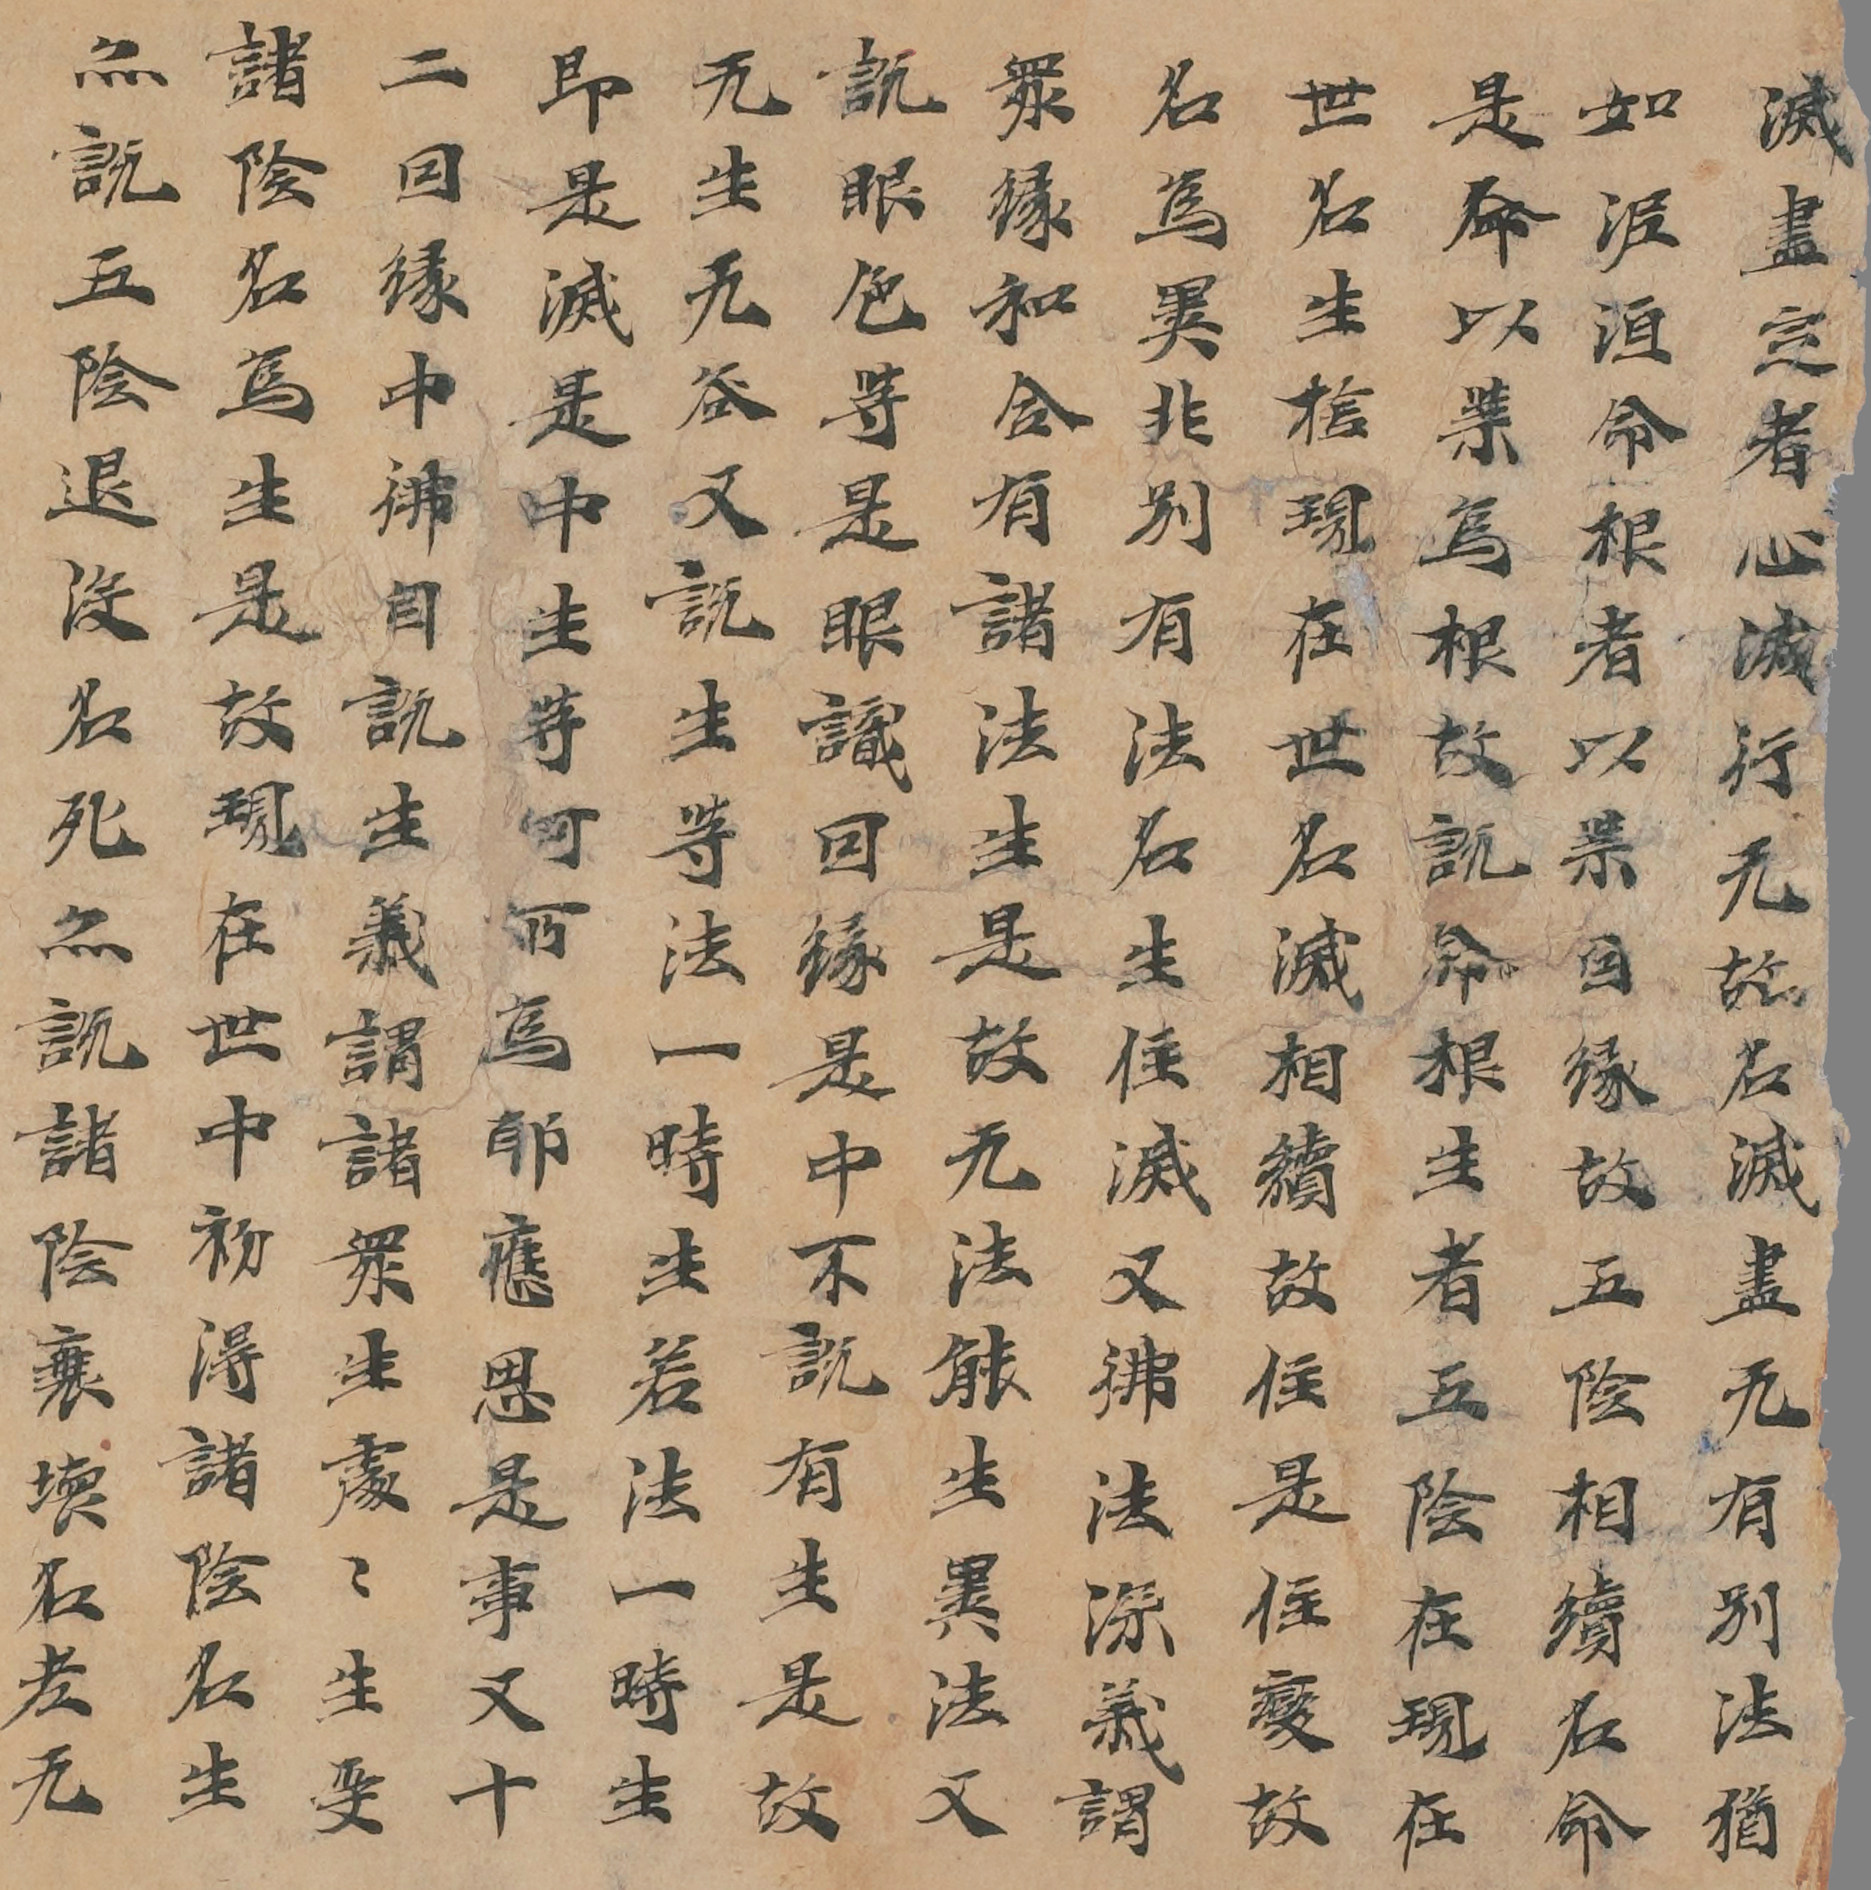 滅盡定者心滅行无故名滅盡无有別法猶
如泥洹命根者以業因緣故五陰相續名命
是命以業為根故說命根生者五陰在現在
世名生捨現在世名滅相續故住是住變故
名為異非別有法名生住滅又佛法深義謂
眾緣和合有諸法生是故无法能生異法又
說眼色等是眼識因緣是中不說有生是故
无生无咎又說生等法一時生若法一時生
即是滅是中生等何所為耶應思是事又十
二因緣中佛自說生義謂諸眾生處〻生受
諸陰名為生是故現在世中初得諸陰名生
亦說五陰退沒名死亦說諸陰衰壞名老无